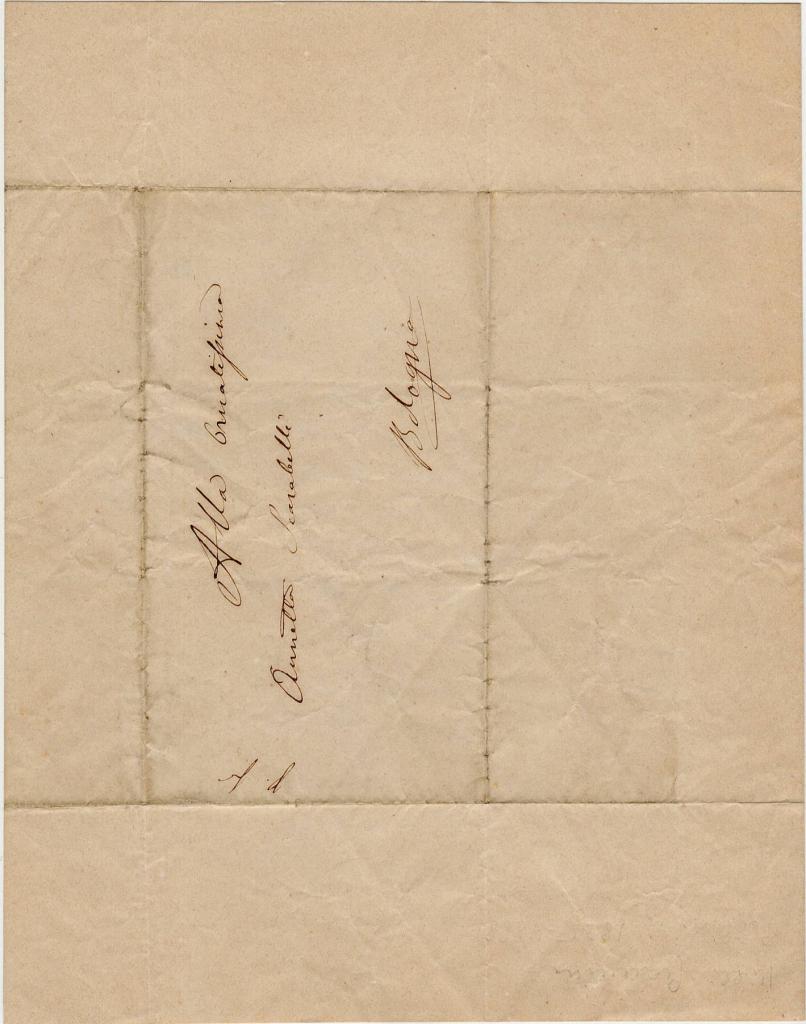 Alla Ornatissima
Annetta Scarabelli
Bologna